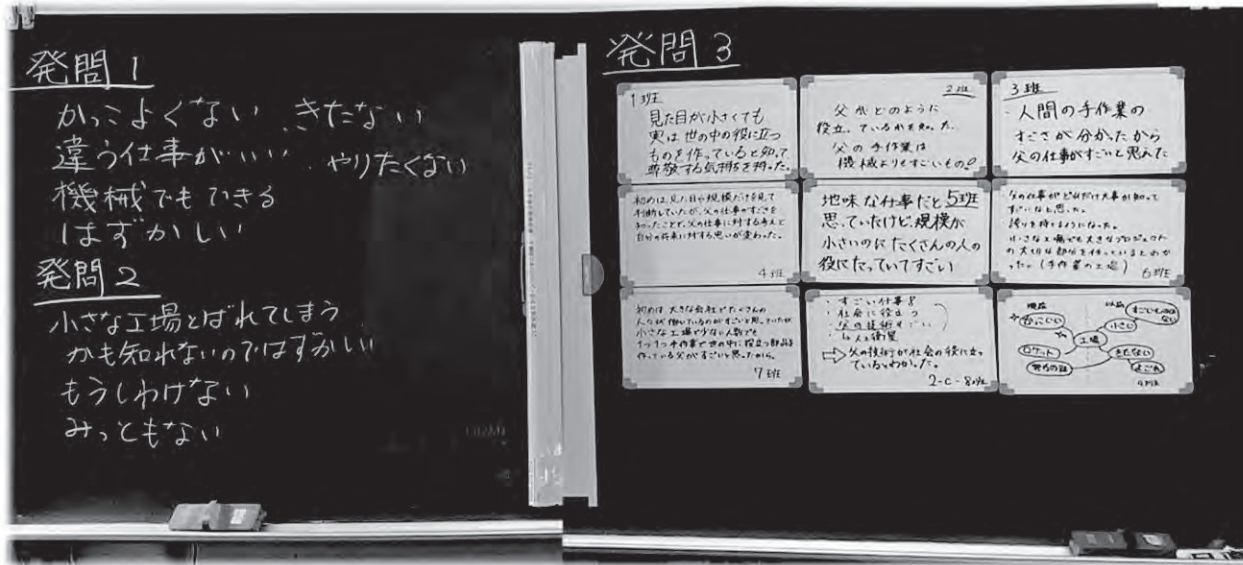 発問1
かっこよくない きたない
違う仕事がいい やりたくない
機械でもできる
はずかしい
発問2
小さな工場とばれてしまう
かも知れないのではずかしい
もうしわけない
みっともない
発問3
1班
見た目が小さくても
実は世の中の役に立つ
ものを作っていると知って
尊敬する気持ちを持った。
2班
父がどのように
役立っているかを知った。
父の手作業は
機械よりもすごいもの!
3班
・人間の手作業の
すごさが分かったから
父の仕事がすごいと思えた
初めは、見た目や規模だけを見て
判断していたが、父の仕事のすごさを
知ったことで、父の仕事に対する考えと
自分の将来に対する思いが変わった。
4班
地味な仕事だと 5班
思っていたけど、規模が
小さいのにたくさんの人の
役にたっていてすごい
父の仕事がどれだけ大事か知って
すごいなと思った。
誇りを持てるようになった。
小さな工場でも大きなプロジェクト
の大切な部分を作っているとわか
った。(手作業の工場)
6班
初めは大きな会社でたくさんの
人々が働いているのがすごいと思っていたが
小さな工場で少ない人数でも
1つ1つ手作業で世の中に役立つ部品を
作っている父がすごいと思ったから。
7班
・すごい仕事!
・社会に役立つ
・父の技術すごい
人工衛星
⇨父の技術が社会の役に立っ
ているとわかった。
2-C-8班
現在 以前
かっこいい 小さい すごいものはない
工場
ロケット きたない
努力の証 よごれ